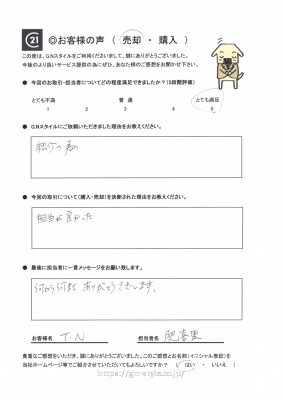 C 21
◎お客様の声 （ 売却 ・ 購入 ）
この度は、G.Nスタイルをご利用くださいまして、誠にありがとうございました。
今後のより良いサービス提供の為にぜひ、あなた様のご感想をお聞かせ下さい。
● 今回のお取引・担当者についてどの程度満足できましたか？（5段階評価）
とても不満 普 通 とても満足
1 2 3 4 5
● G.Nスタイルにご依頼いただきました理由をお教えください。
紹介の為
● 今回の取引について（購入・売却）を決断された理由をお教えください。
担当が良かった
● 最後に担当者に一言メッセージをお願い致します。
何から何まで ありがとうございます。
お客様名 T.N 担当者名
貴重なご感想をいただき、誠にありがとうございました。このご感想とお名前（イニシャル表記）を
当社ホームページ等でご紹介させていただいてもよろしいですか？ （ はい ・ いいえ ）
https://gn-style.co.jp/